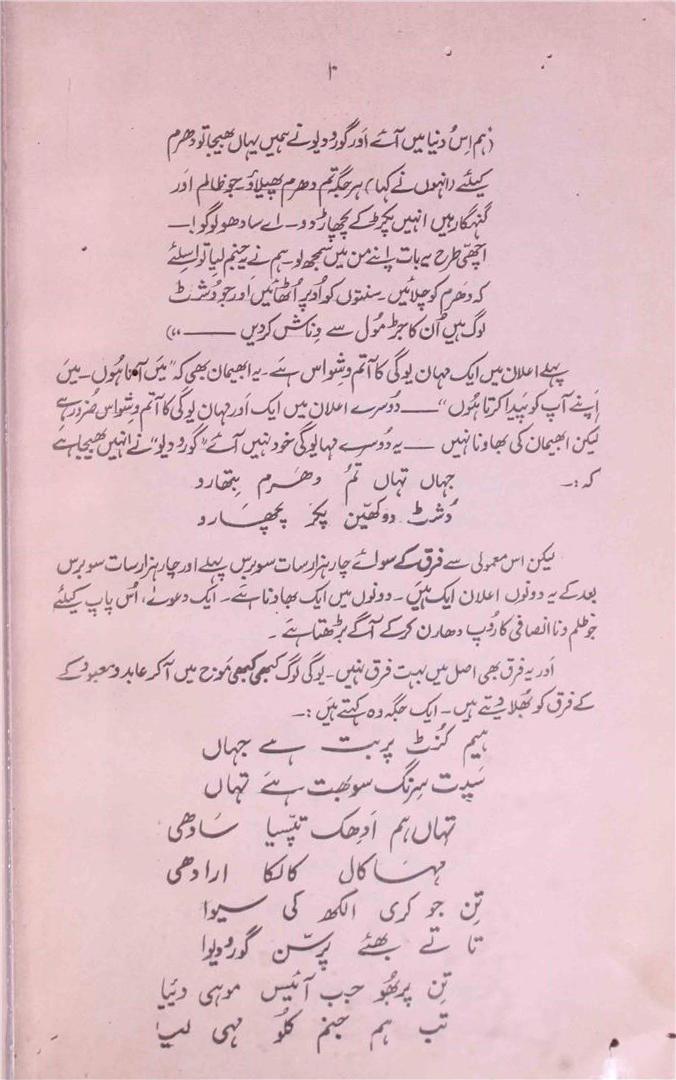 ۱
(ہم اِس دُنیا میں آئے اَور گورودیو نے ہمیں یہاں بھیجا تو دھرم
کیلئے (انہوں نے کہا) ہر جگہ تم دھرم پھیلاؤ۔ جو ظالم اَور
گنہگار ہیں اُنہیں پکڑ کے پچھاڑ دو۔ اے سادھو لوگو!۔
اچھی طرح یہ بات اپنے من میں سمجھ لو۔ ہم نے یہ جنم لیا تو اسلئے
کہ دَھرم کو چلائیں۔ سنتوں کو اُوپر اُٹھائیں اَور جو دُشٹ
لوگ ہیں اُن کا جڑ مُول سے وِناش کر دیں ——،،)
پہلے اعلان میں ایک مہان یوگی کا آتم وشواس ہے۔ یہ ابھیمان بھی کہ "میں آتما ہُوں۔ میں
اَپنے آپ کو پَیدا کرتا ہُوں" —— دُوسرے اعلان میں ایک اَور مہان یوگی کا آتم وشواس ضرور ہے
لیکن ابھیمان کی بھاونا نہیں —— یہ دُوسرے مہایوگی خود نہیں آئے، "گورودیو" نے انہیں بھیجا ہے
کہ :۔
جہاں تہاں تُم دھرم بِتھارو
دُشٹ دوکھین پکڑ پچھارو
لیکن اس معمولی سے فرق کے سوائے چار ہزار سات سو برس پہلے اور چار ہزار سات سو برس
بعد کے یہ دونوں اعلان ایک ہیں۔ دونوں میں ایک بھاونا ہے۔ ایک دعوےٰ، اُس پاپ کیلئے
جو ظلم و نا انصافی کا رُوپ دھارن کر کے آگے بڑھتا ہے۔
اَور یہ فرق بھی اصل میں بہت فرق نہیں۔ یوگی لوگ کبھی کبھی مَوج میں آ کر عابد و معبود کے
کے فرق کو بُھلا دیتے ہیں۔ ایک جگہ وہ کہتے ہیں :۔
ہیم کُنٹ پربت ہے جہاں
سَپت سرِنگ سوبھت ہےَ تہاں
تہاں ہم اَدِھک تپسیا سَادھی
مہا کال کالکا ارادھی
تِن جو کری الکھ کی سیوا
تا تے بھئے پرسّن گورودیوا
تِن پربُھو جب آئیس موہی دئیا
تب ہم جنم کلُو مہی لیا